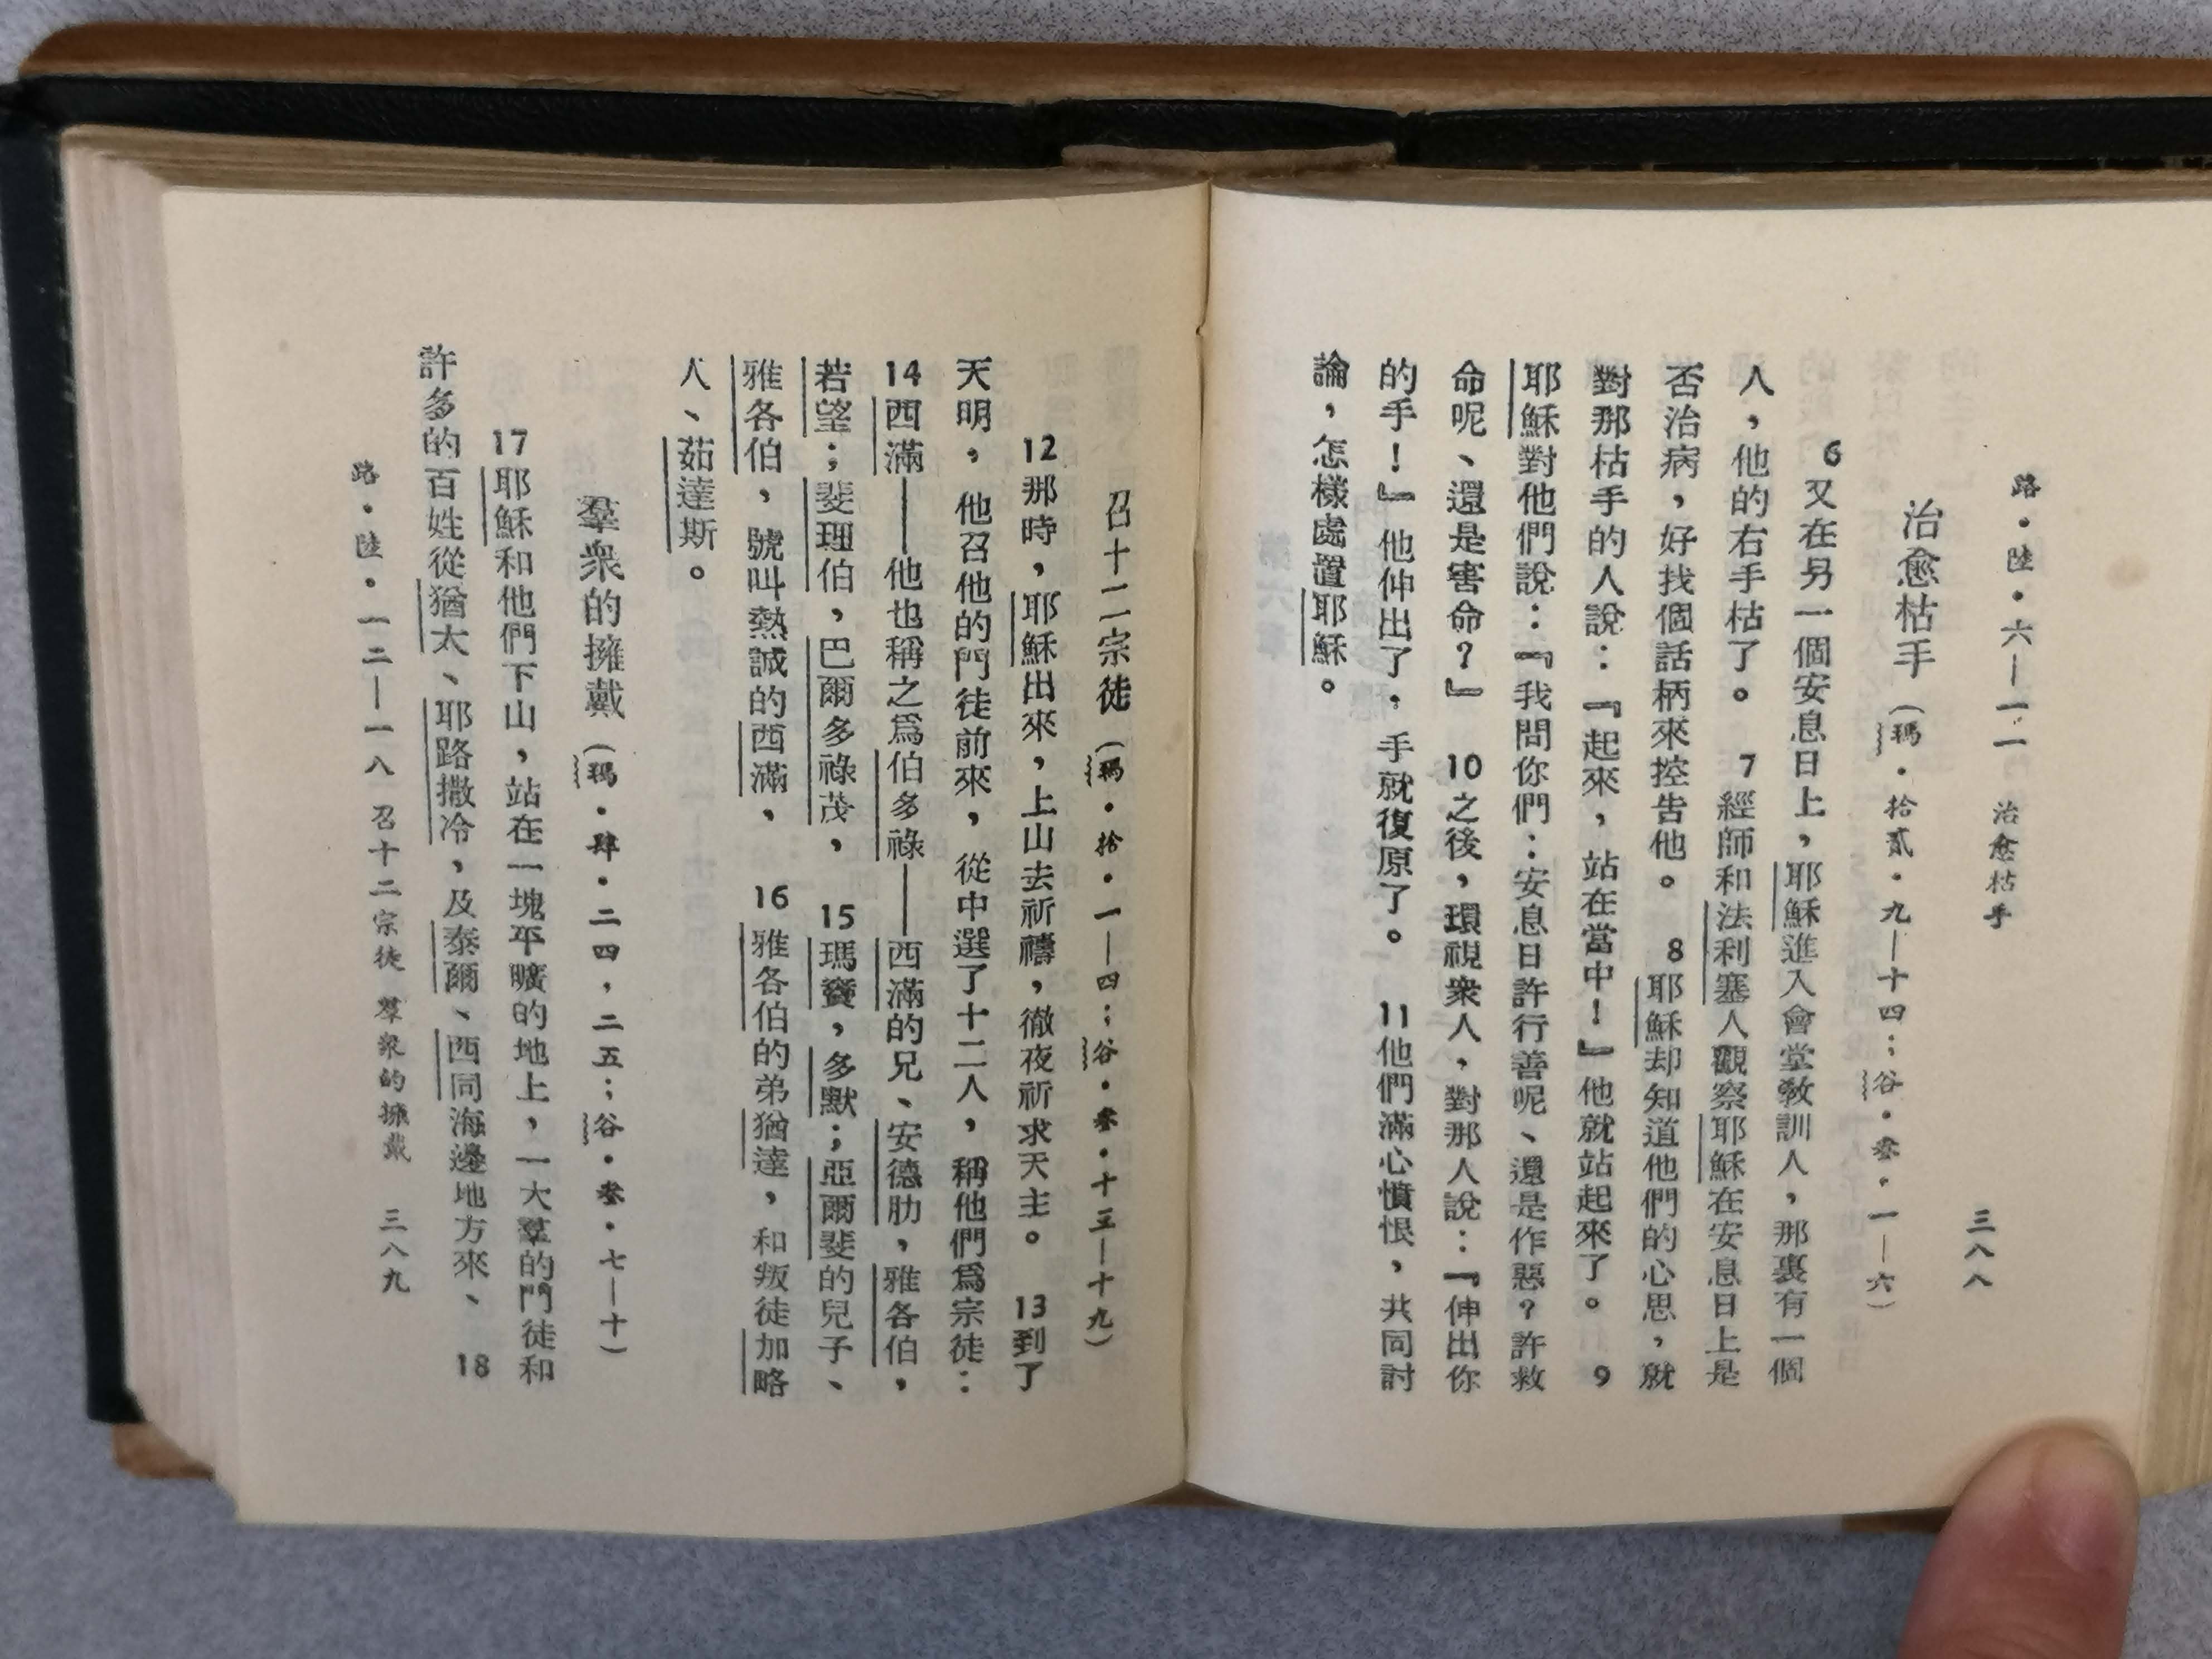 路・陸・六—一一 治愈枯手 三八八
治愈枯手（瑪・拾貳・九—十四；谷・叁・一—六）
6又在另一個安息日上，耶穌進入會堂教訓人，那裏有一個
人，他的右手枯了。 7經師和法利塞人觀察耶穌在安息日上是
否治病，好找個話柄來控告他。 8耶穌却知道他們的心思，就
對那枯手的人說：『起來，站在當中！』他就站起來了。 9
耶穌對他們說：『我問你們：安息日許行善呢、還是作惡？許救
命呢、還是害命？』 10之後，環視衆人，對那人說：『伸出你
的手！』他伸出了，手就復原了。 11他們滿心憤恨，共同討
論，怎樣處置耶穌。
召十二宗徒（瑪・拾・一—四；谷・叁・十三—十九）
12那時，耶穌出來，上山去祈禱，徹夜祈求天主。 13到了
天明，他召他的門徒前來，從中選了十二人，稱他們爲宗徒：
14西滿——他也稱之爲伯多祿——西滿的兄、安德肋，雅各伯，
若望；斐理伯，巴爾多祿茂， 15瑪竇，多默；亞爾斐的兒子、
雅各伯，號叫熱誠的西滿， 16雅各伯的弟猶達，和叛徒加略
人、茹達斯。
羣衆的擁戴（瑪・肆・二四，二五；谷・叁・七—十）
17耶穌和他們下山，站在一塊平曠的地上，一大羣的門徒和
許多的百姓從猶太、耶路撒冷，及泰爾、西同海邊地方來、 18
路・陸・一二—一八 召十二宗徒 羣衆的擁戴 三八九